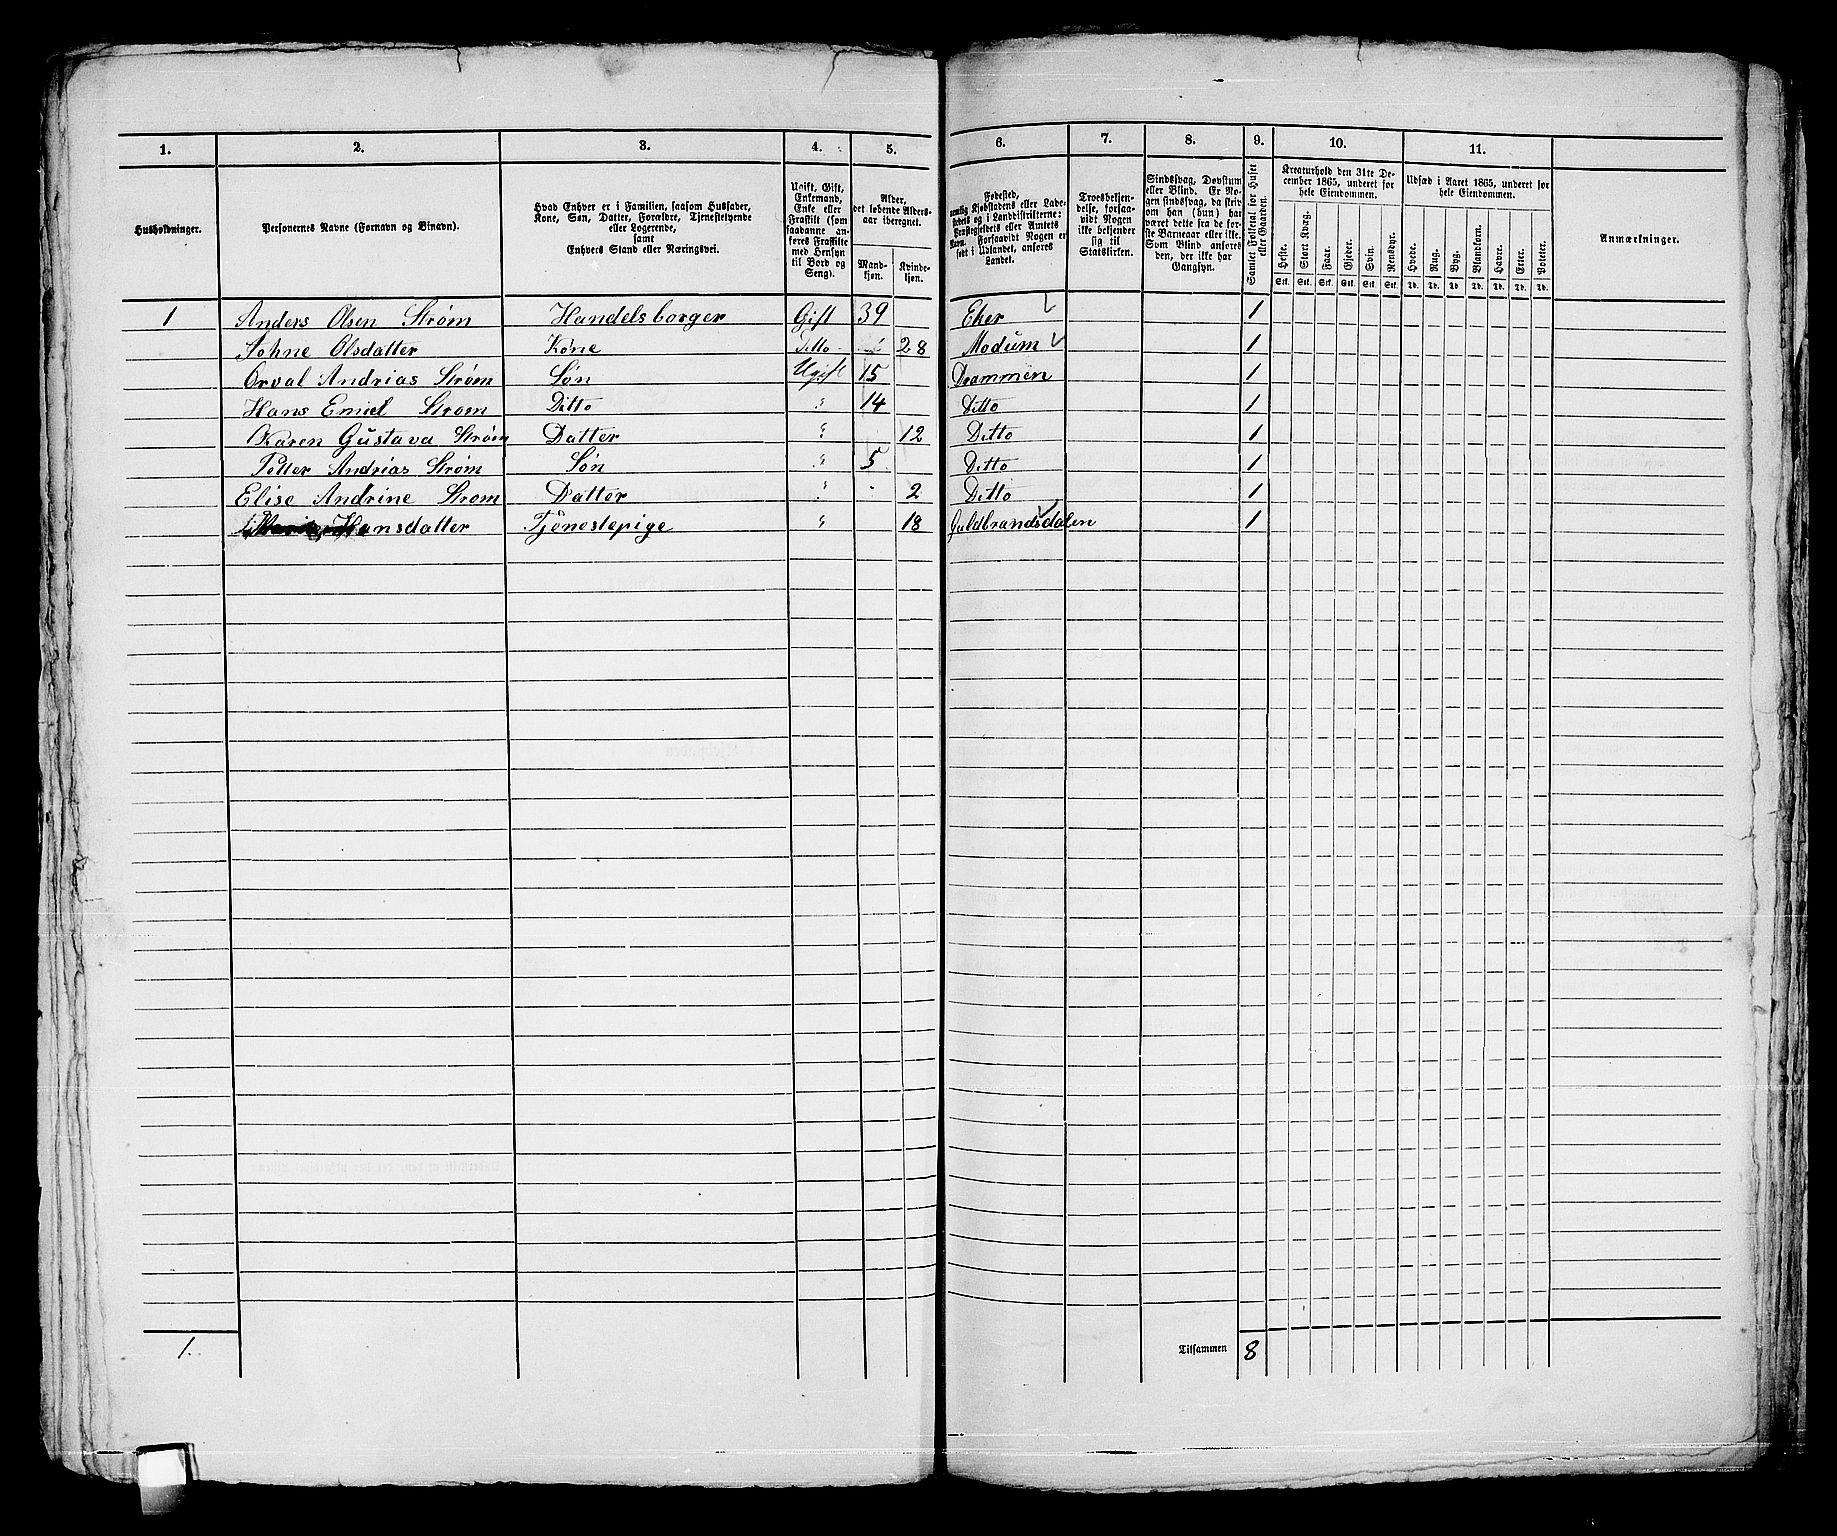 1. 2. 3. 4. 5. 6. 7. 8. 9. 10. 11.
Husholdninger.
Personernes Navne (Fornavn og Binavn).
Hvad Enhver er i Familien, saasom Husfader,
Kone, Søn, Datter, Forældre, Tjenestetyende
eller Logerende,
samt
Enhvers Stand eller Næringsvei.
Ugift, Gift,
Enkemand,
Enke eller
Fraskilt (som
saadanne an-
føres Fraskilte
med Hensyn
til Bord og
Seng).
Alder,
det løbende Alders-
aar iberegnet.
Mand-
kjøn.
Kvinde-
kjøn.
Fødested,
nemlig Kjøbstadens eller Lade-
stedets og i Landdistrikterne:
Præstegjeldets eller Amtets
Navn. Forsaavidt Nogen er
født i Udlandet, anføres
Landet.
Troesbekjen-
delse, forsaa-
vidt Nogen
ikke bekjender
sig til
Statskirken.
Sindssvag, Døvstum
eller Blind. Er No-
gen sindssvag, da skriv
om han (hun) har
været dette fra de før-
ste Barneaar eller ikke.
Som Blind anføres
den, der ikke har
Gangsyn.
Samlet Folketal for Huset
eller Gaarden.
Kreaturhold den 31te De-
cember 1865, underet for
hele Eiendommen.
Heste. Stort Kvæg. Faar. Gjeder. Svin. Rensdyr.
Stk. Stk. Stk. Stk. Stk. Stk.
Udsæd i Aaret 1865, underet for
hele Eiendommen.
Hvede. Rug. Byg. Blandkorn. Havre. Erter. Poteter.
Td. Td. Td. Td. Td. Td. Td.
Anmærkninger.
1 Anders Olsen Strøm Handelsborger Gift 39 Eker 1
Johne Olsdatter Kone Ditto 28 Modum 1
Orval Andrias Strøm Søn Ugift 15 Drammen 1
Hans Emiel Strøm Ditto " 14 Ditto 1
Karen Gustava Strøm Datter " 12 Ditto 1
Petter Andrias Strøm Søn " 5 Ditto 1
Elise Andrine Strøm Datter " 2 Ditto 1
Hansdatter Tjenestepige " 18 Guldbrandsdalen 1
1. Tilsammen 8